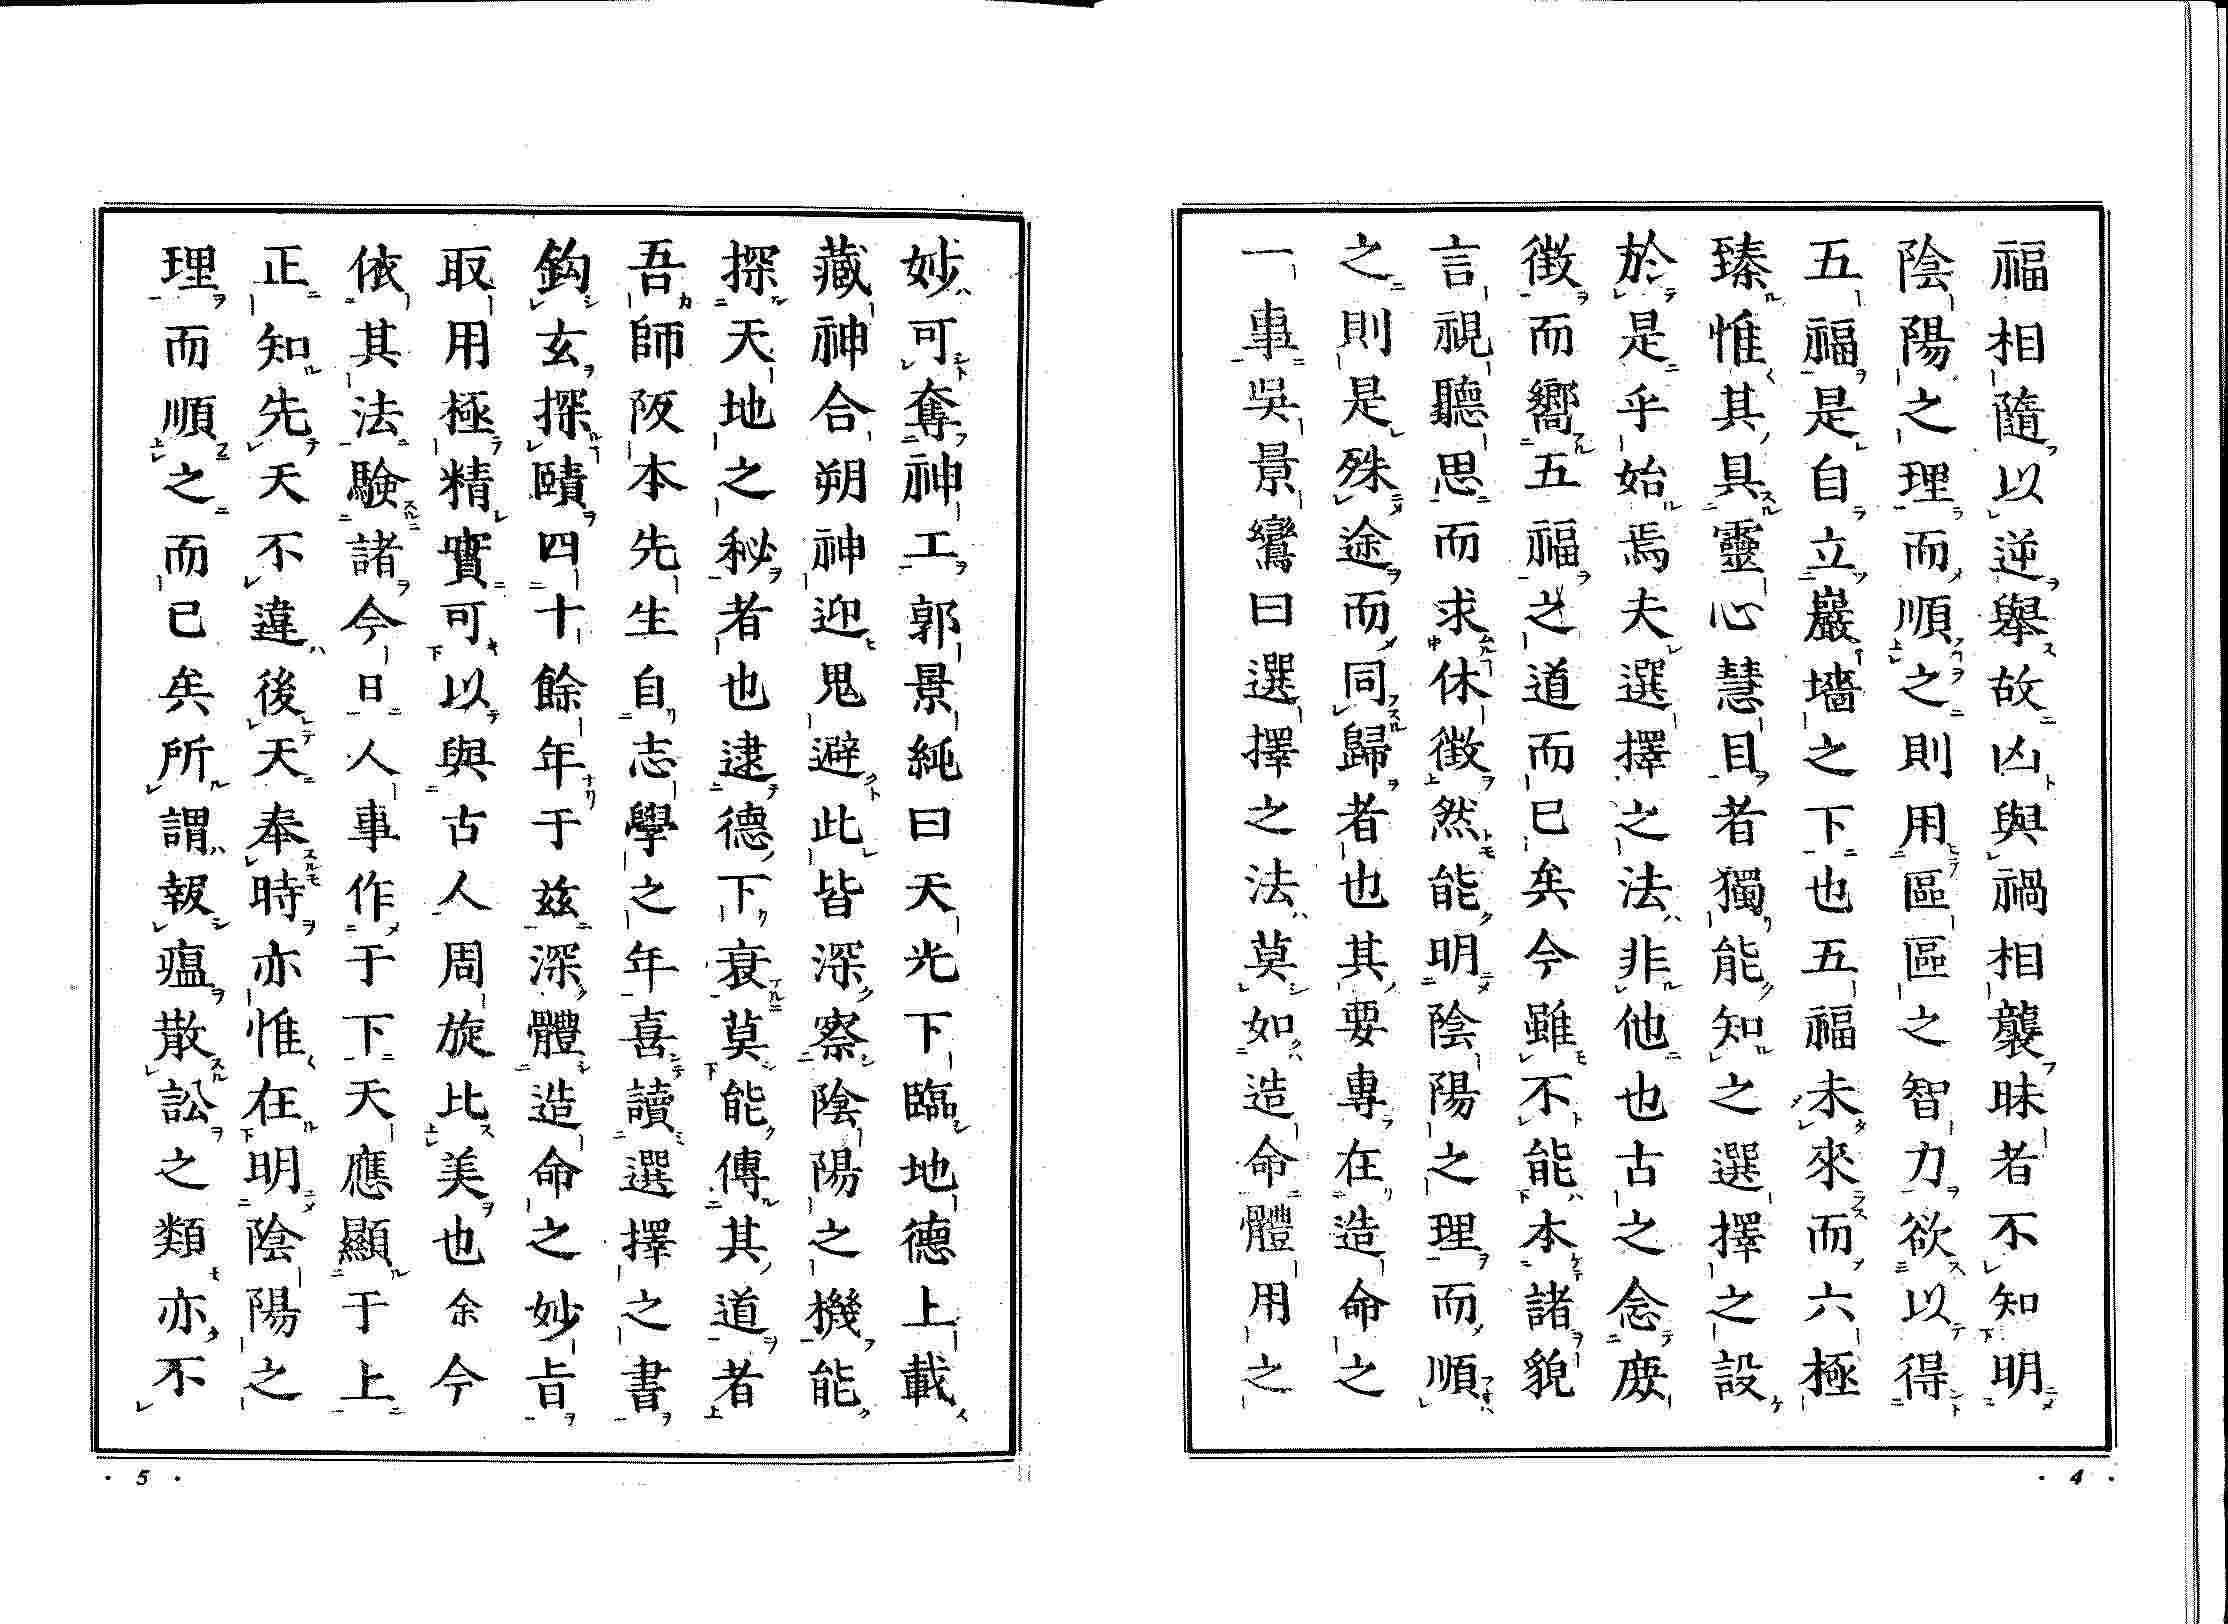 福相隨以逆舉故凶與禍相襲昧者不知明
陰陽之理而順之則用區區之智力欲以得
五福是自立巖墻之下也五福未來而六極
臻惟其具靈心慧目者獨能知之選擇之設
於是乎始焉夫選擇之法非他也古之念庶
徵而嚮五福之道而已矣今雖不能本諸貌
言視聽思而求休徵然能明陰陽之理而順
之則是殊途而同歸者也其要專在造命之
一事吳景鸞曰選擇之法莫如造命體用之
· 4 ·
妙可奪神工郭景純曰天光下臨地德上載
藏神合朔神迎鬼避此皆深察陰陽之機能
探天地之秘者也逮德下衰莫能傳其道者
吾師阪本先生自志學之年喜讀選擇之書
鈎玄探賾四十餘年于茲深體造命之妙旨
取用極精實可以與古人周旋比美也余今
依其法驗諸今日人事作于下天應顯于上
正知先天不違後天奉時亦惟在明陰陽之
理而順之而已矣所謂報瘟散訟之類亦不
· 5 ·